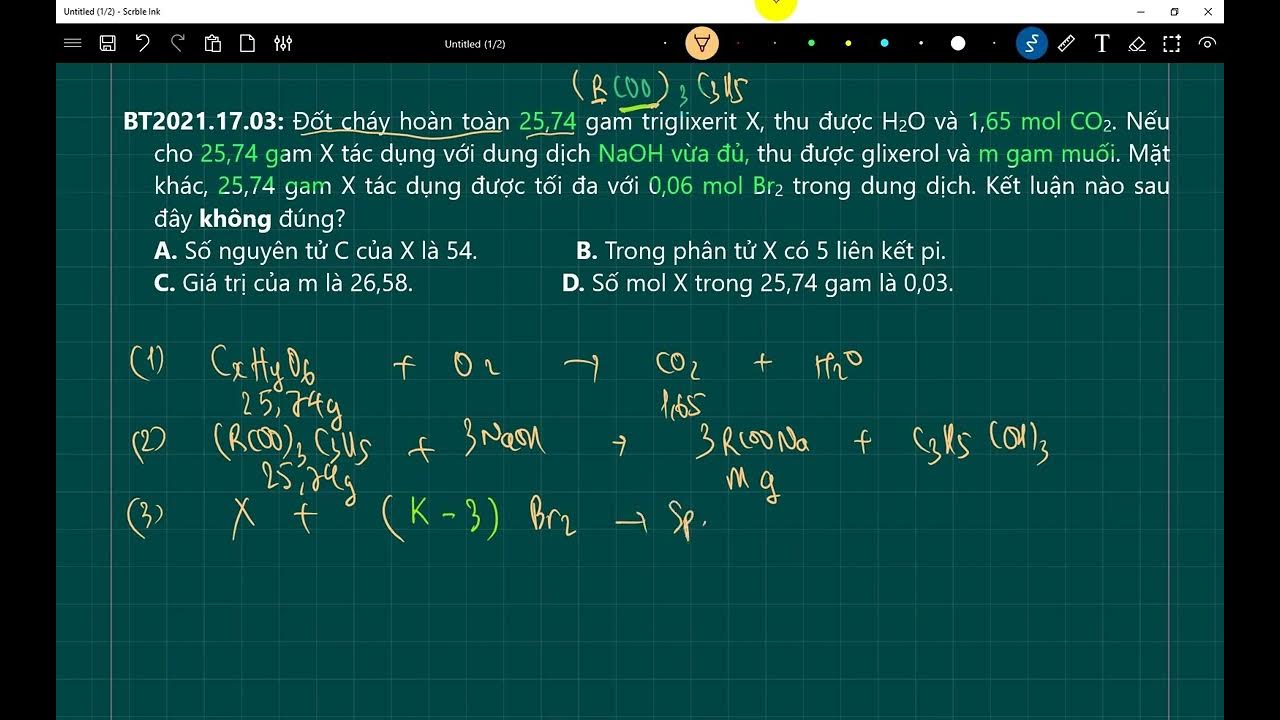 Untitled (1/2) - Scrble Ink
Untitled (1/2)
T
(RCOO)3C3H5
BT2021.17.03: Đốt cháy hoàn toàn 25,74 gam triglixerit X, thu được H2O và 1,65 mol CO2. Nếu
cho 25,74 gam X tác dụng với dung dịch NaOH vừa đủ, thu được glixerol và m gam muối. Mặt
khác, 25,74 gam X tác dụng được tối đa với 0,06 mol Br2 trong dung dịch. Kết luận nào sau
đây không đúng?
A. Số nguyên tử C của X là 54. B. Trong phân tử X có 5 liên kết pi.
C. Giá trị của m là 26,58. D. Số mol X trong 25,74 gam là 0,03.
(1) CxHyO6 + O2 → CO2 + H2O
25,74g 1,65
(2) (RCOO)3C3H5 + 3NaOH → 3RCOONa + C3H5(OH)3
25,74g m g
(3) X + (K-3) Br2 → Sp.